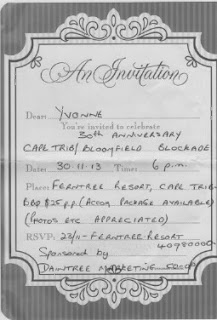 An Invitation
Dear: YVONNE
You're invited to celebrate
30th ANNIVERSARY
CAPE TRIB/BLOOMFIELD BLOCKADE
Date: 30.11.13 Time: 6 p.m.
Place: FERNTREE RESORT, CAPE TRIB-
BBQ $25 p.p. (ACCOM PACKAGE AVAILABLE)
(PHOTOS ETC APPRECIATED)
RSVP: 23/11 - FERNTREE RESORT
40980000
Sponsored by
DAINTREE MARKETING